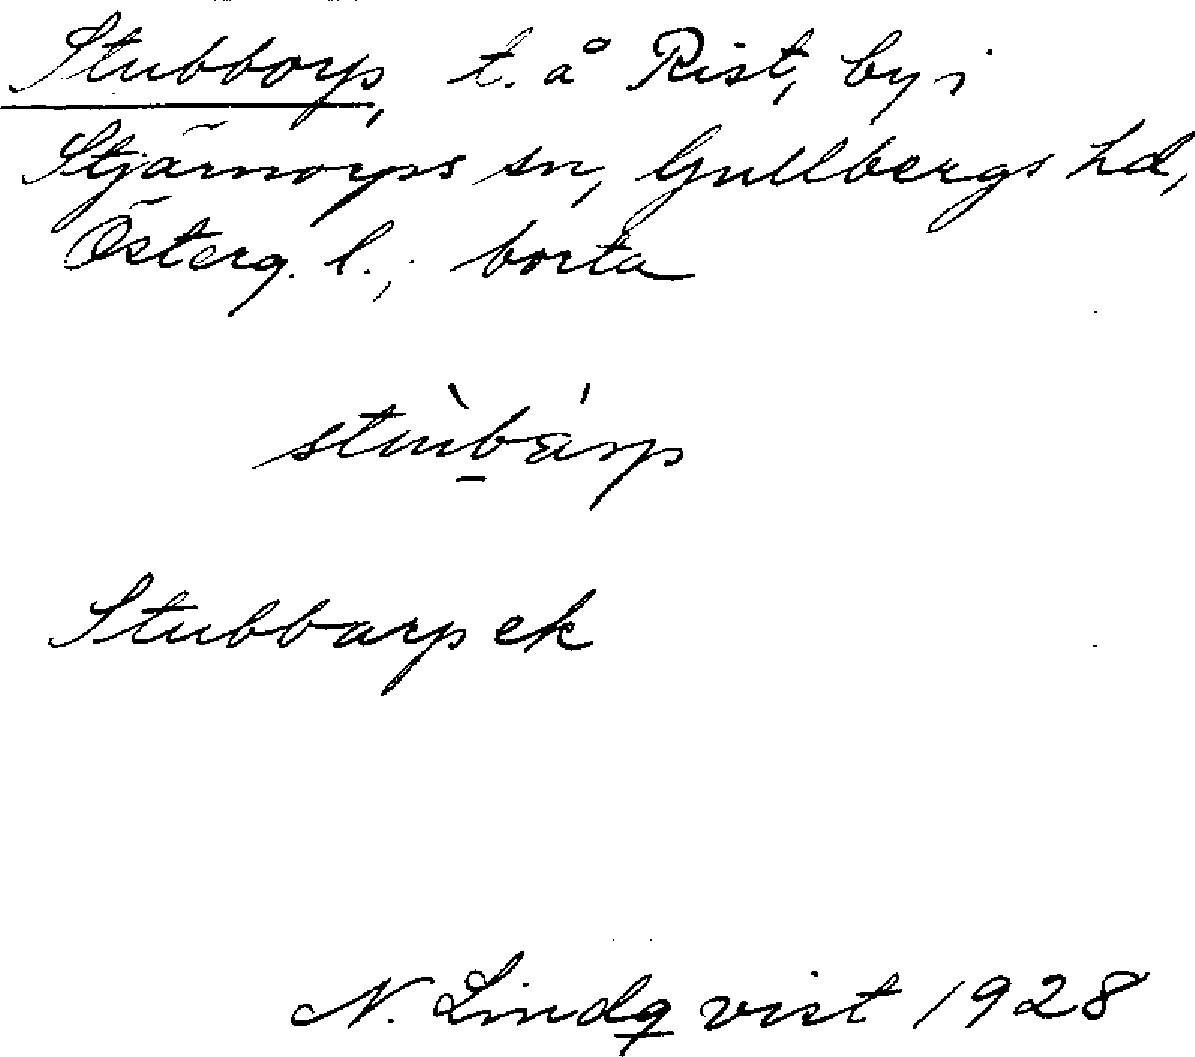 Stubborp, t. å Rist, by i
Stjärnorps sn, Gullbergs hd,
Österg. l.; borta
stùbárp
Stubbarp ek
N. Lindqvist 1928